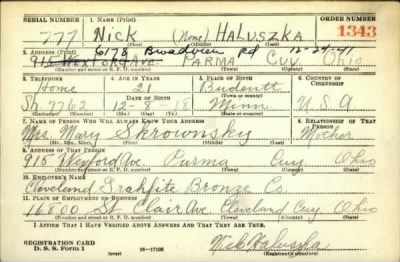 SERIAL NUMBER 1. NAME (Print) ORDER NUMBER
777 NICK (None) HALUSZKA 1343
(First) (Middle) (Last)
6178 Broadview Rd 12-24-41
2. ADDRESS (Print)
915 Wexford Ave. PARMA CUY. Ohio
(Number and street or R. F. D. number) (Town) (County) (State)
3. TELEPHONE 4. AGE IN YEARS 5. PLACE OF BIRTH 6. COUNTRY OF CITIZENSHIP
Home 21
DATE OF BIRTH (Town or county)
Sh. 7762 12-8-18 Minn. U S A
(Exchange) (Number) (Mo.) (Day) (Yr.) (State or country)
7. NAME OF PERSON WHO WILL ALWAYS KNOW YOUR ADDRESS 8. RELATIONSHIP OF THAT PERSON
Mrs. Mary Skrownsky Mother
(Mr., Mrs., Miss) (First) (Middle) (Last)
9. ADDRESS OF THAT PERSON
915 Wexford Ave. Parma Cuy Ohio
(Number and street or R. F. D. number) (Town) (County) (State)
10. EMPLOYER'S NAME
Cleveland Grahfite Bronze Co.
11. PLACE OF EMPLOYMENT OR BUSINESS
16800 St Clair Ave Cleveland Cuy Ohio
(Number and street or R. F. D. number) (Town) (County) (State)
I AFFIRM THAT I HAVE VERIFIED ABOVE ANSWERS AND THAT THEY ARE TRUE.
REGISTRATION CARD
D. S. S. Form 1 (over) Nick Haluszka
(Registrant's signature)